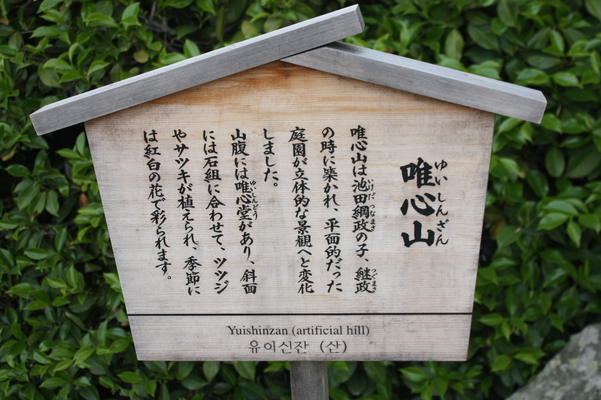 唯心山
ゆいしんざん
唯心山は池田綱政の子、継政
いけだつなまさ
つぐまさ
の時に築かれ、平面的だった
庭園が立体的な景観へと変化
しました。
山腹には唯心堂があり、斜面
ゆいしんどう
には石組に合わせて、ツツジ
やサツキが植えられ、季節に
は紅白の花で彩られます。
Yuishinzan (artificial hill)
유이신잔 (산)